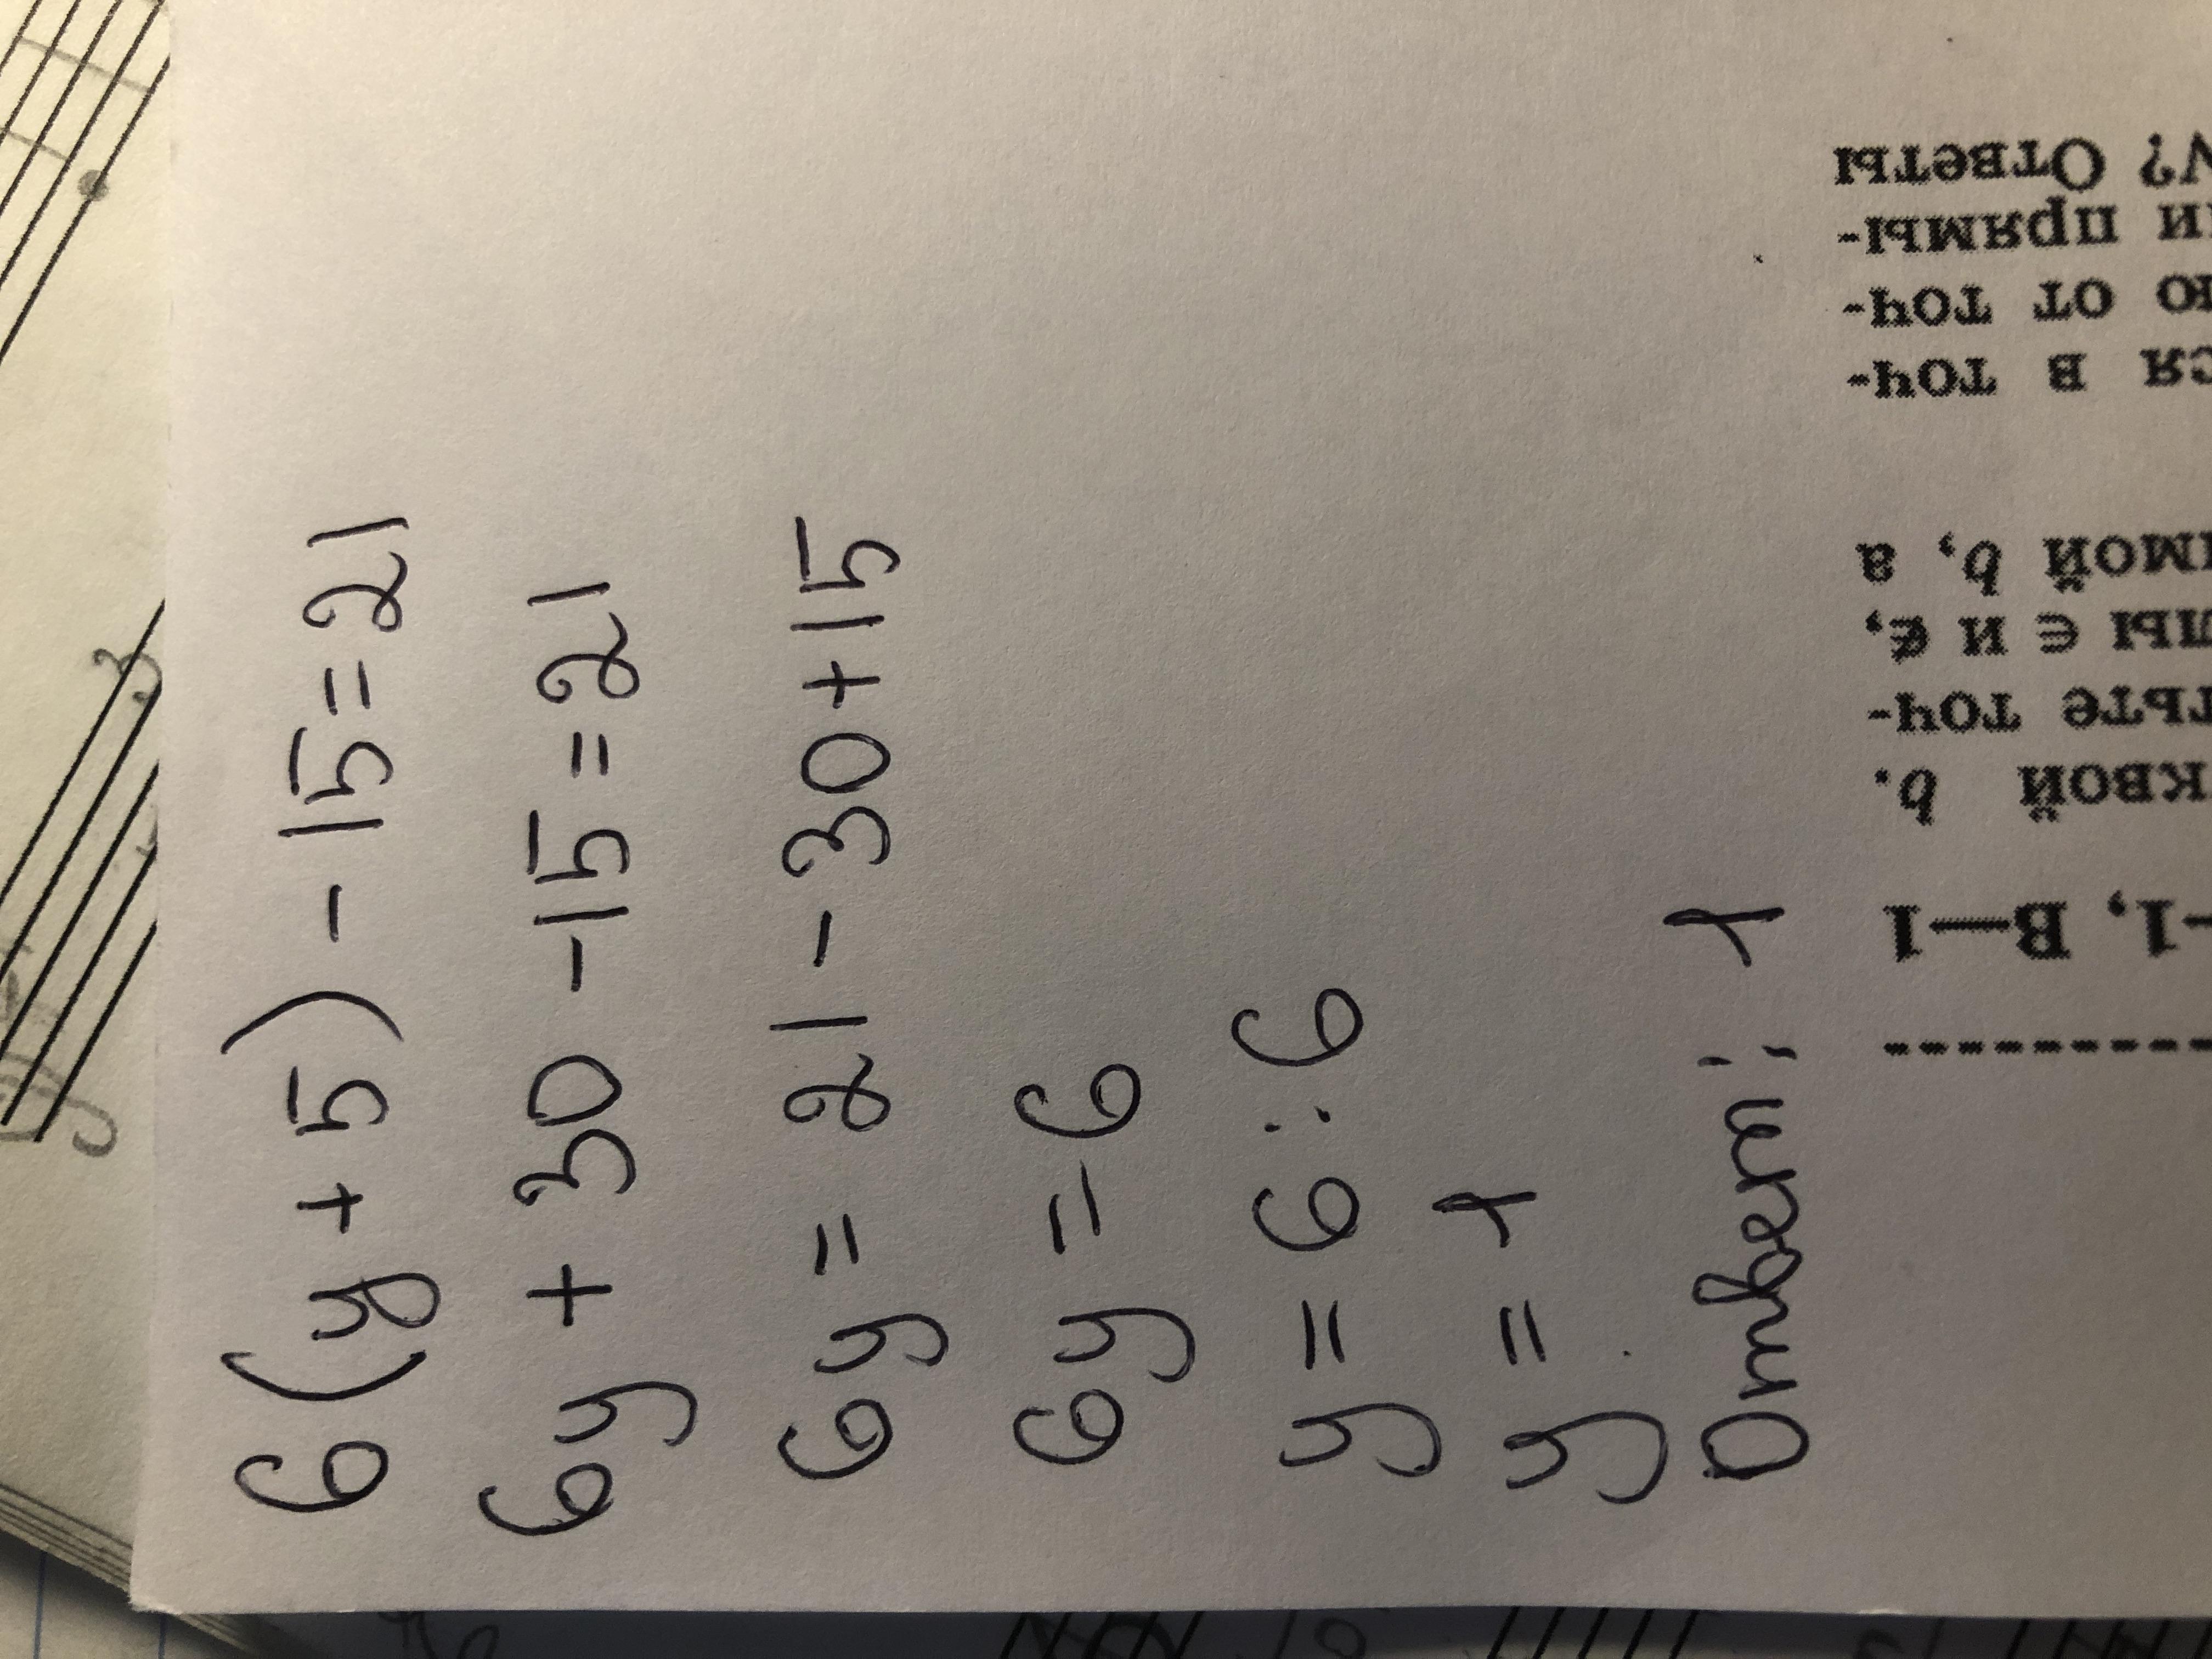 6(y+5)-15=21
6y+30-15=21
6y=21-30+15
6y=6
y=6:6
y=1
Ответ: 1
-1, В—1
квой b.
тьте точ-
лы ∈ и ∉,
мой b, а
ся в точ-
ю от точ-
ли прямы-
? Ответы